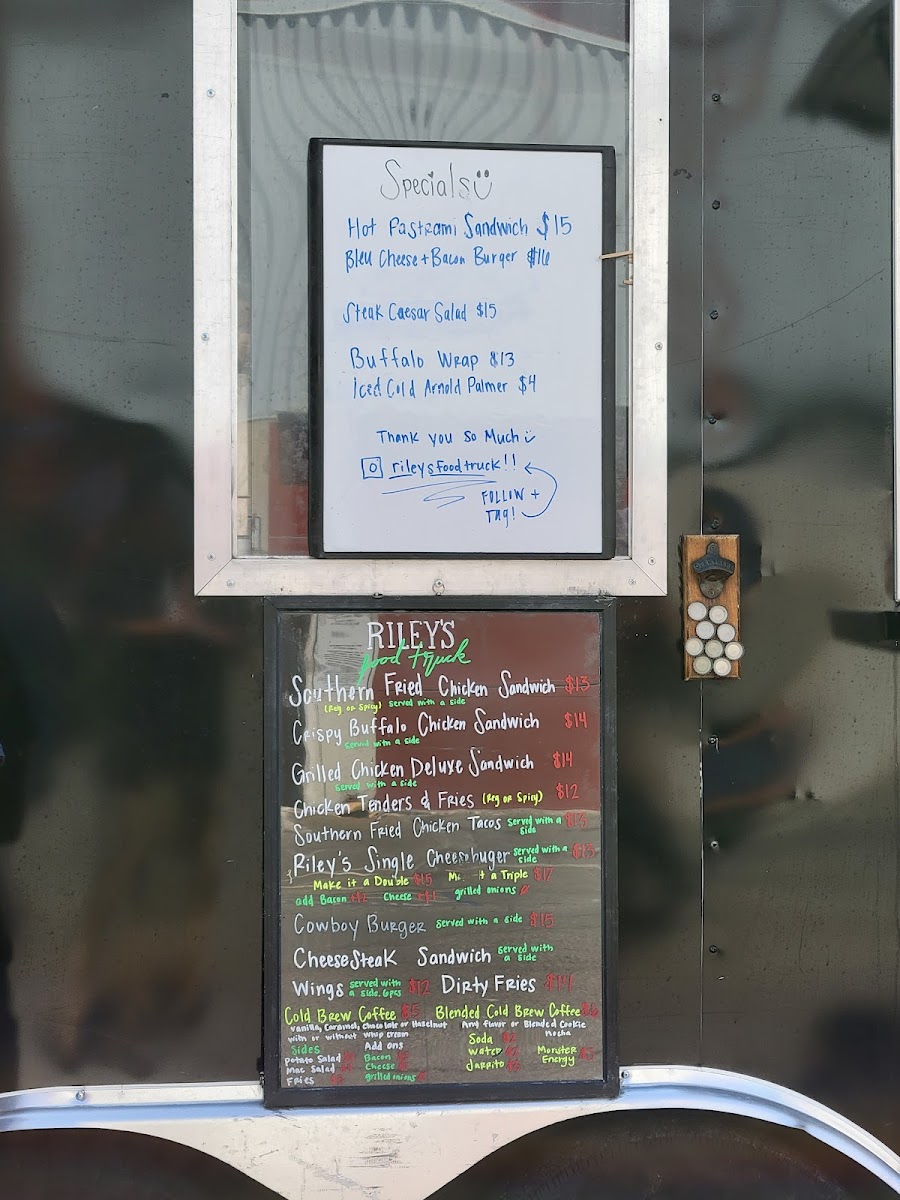 Specials
Hot Pastrami Sandwich $15
Bleu Cheese + Bacon Burger $16
Steak Caesar Salad $15
Buffalo Wrap $13
Iced Cold Arnold Palmer $4
Thank you so Much
rileysfoodtruck!!
FOLLOW +
TAG!
RILEY'S
food truck
Southern Fried Chicken Sandwich $13
(Reg or Spicy) served with a side
Crispy Buffalo Chicken Sandwich $14
served with a side
Grilled Chicken Deluxe Sandwich $14
served with a side
Chicken Tenders & Fries (Reg or Spicy) $12
Southern Fried Chicken Tacos served with a side
Riley's Single Cheeseburger served with a side
Make it a Double $15 it a Triple $17
add Bacon Cheese grilled onions
Cowboy Burger served with a side $15
CheeseSteak Sandwich served with a side
Wings served with a side. 6pcs $12 Dirty Fries
Cold Brew Coffee $5 Blended Cold Brew Coffee
Vanilla, Caramel, Chocolate or Hazelnut Any flavor or Blended Cookie
with or without whip cream Mocha
Sides Add ons Soda
Potato Salad Bacon Water Monster
Mac Salad Cheese Jarrito Energy
Fries grilled onions